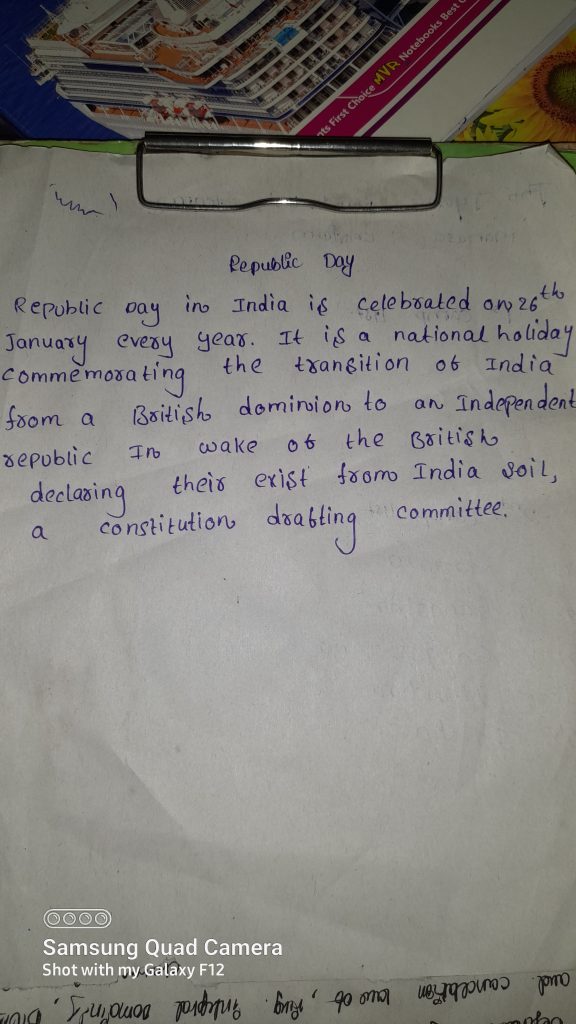 nts First Choice MVR Notebooks Best
Republic Day
Republic Day in India is celebrated on 26th
January every year. It is a national holiday
commemorating the transition of India
from a British dominion to an Independent
republic In wake of the British
declaring their exist from India soil,
a constitution drafting committee.
Samsung Quad Camera
Shot with my Galaxy F12
and cancelation law of, Ring, Integral domain,